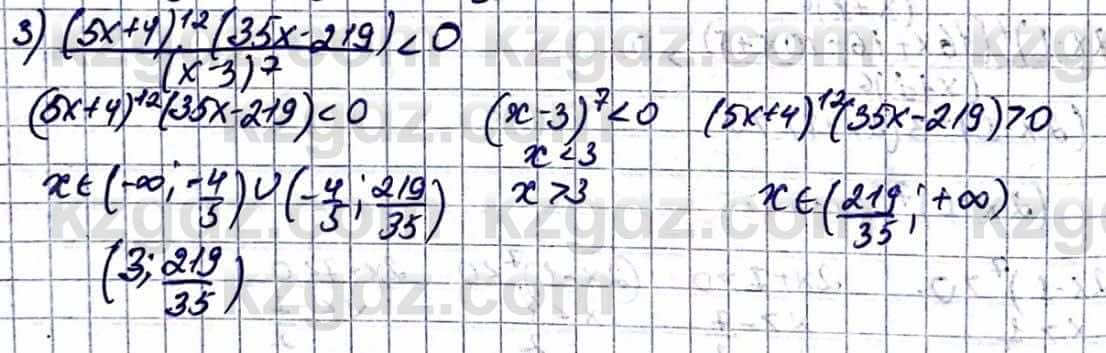 3) (5x+4)^12 (35x-219) / (x-3)^7 < 0
(5x+4)^12 (35x-219) < 0   (x-3)^7 < 0   (5x+4)^12 (35x-219) > 0
x < 3
x ∈ (-∞; -4/5) ∪ (-4/5; 219/35)   x > 3   x ∈ (219/35; +∞)
(3; 219/35)
kzgdz.com